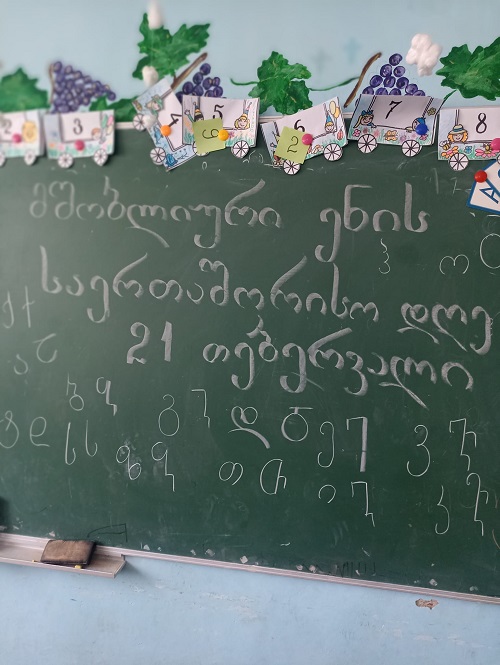 2 3 4 5 6 7 8
მშობლიური ენის
საერთაშორისო დღე
21 თებერვალი
გ Ⴂ დ Ⴃ ე Ⴄ ვ Ⴅ
ზ Ⴆ თ Ⴇ ი Ⴈ კ Ⴉ